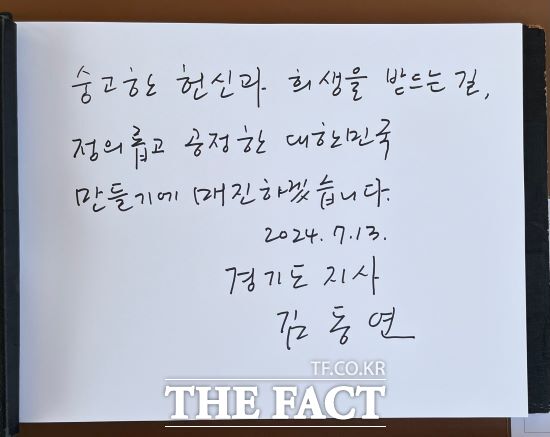 숭고한 헌신과 희생을 받드는 길,
정의롭고 공정한 대한민국
만들기에 매진하겠습니다.
2024. 7. 13.
경기도지사
김동연
TF.CO.KR
THE FACT